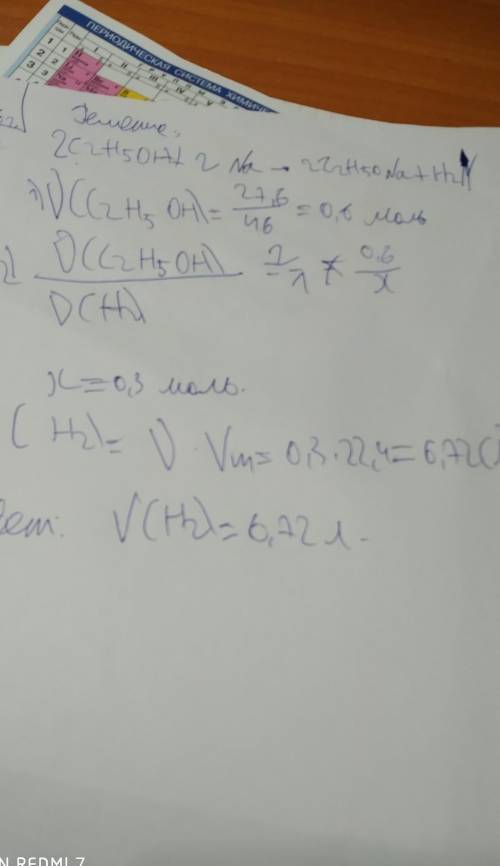 ПЕРИОДИЧЕСКАЯ СИСТЕМА ХИМИЧЕ
Решение:
2C2H5OH + 2Na → 2C2H5ONa + H2↑
1) ν(C2H5OH) = 27,6/46 = 0,6 моль
2) ν(C2H5OH)/ν(H) = 2/1 = 0,6/x
x = 0,3 моль.
(H2) = ν · Vm = 0,3 · 22,4 = 6,72(
вет: V(H2) = 6,72 л.
N REDMI 7